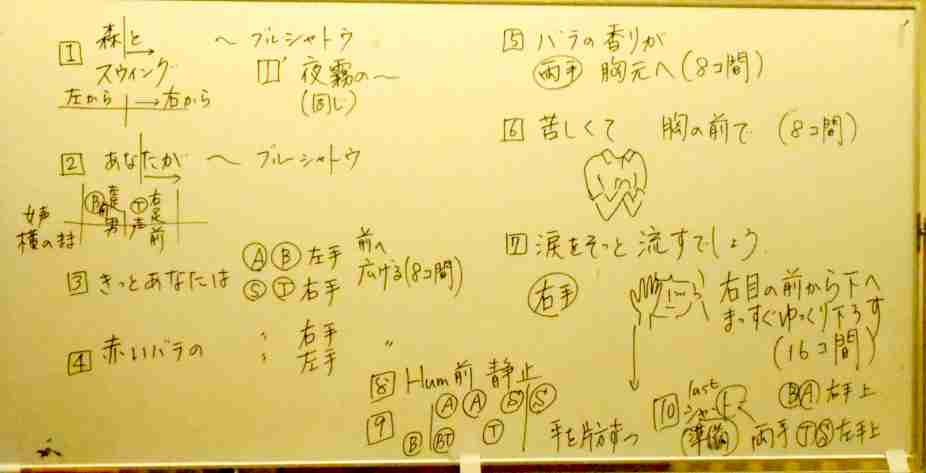 1 森と ～ ブルーシャトウ
スウィング 1' 夜霧の～
左から → 右から (同じ)
2 あなたが ～ ブルーシャトウ
B 男 T 声 右足前
女声
横のまま
3 きっとあなたは A B 左手 前へ
S T 右手 広げる(8コ間)
4 赤いバラの 〃 右手 〃
〃 左手
5 バラの香りが
両手 胸元へ (8コ間)
6 苦しくて 胸の前で (8コ間)
7 涙をそっと 流すでしょう
右手 右目の前から下へ
まっすぐゆっくり下ろす
(16コ間)
8 Hum前 静止
9 A A S S
B BT T
手を片方ずつ
10 last
準備 両手
B A 右手上
T S 左手上